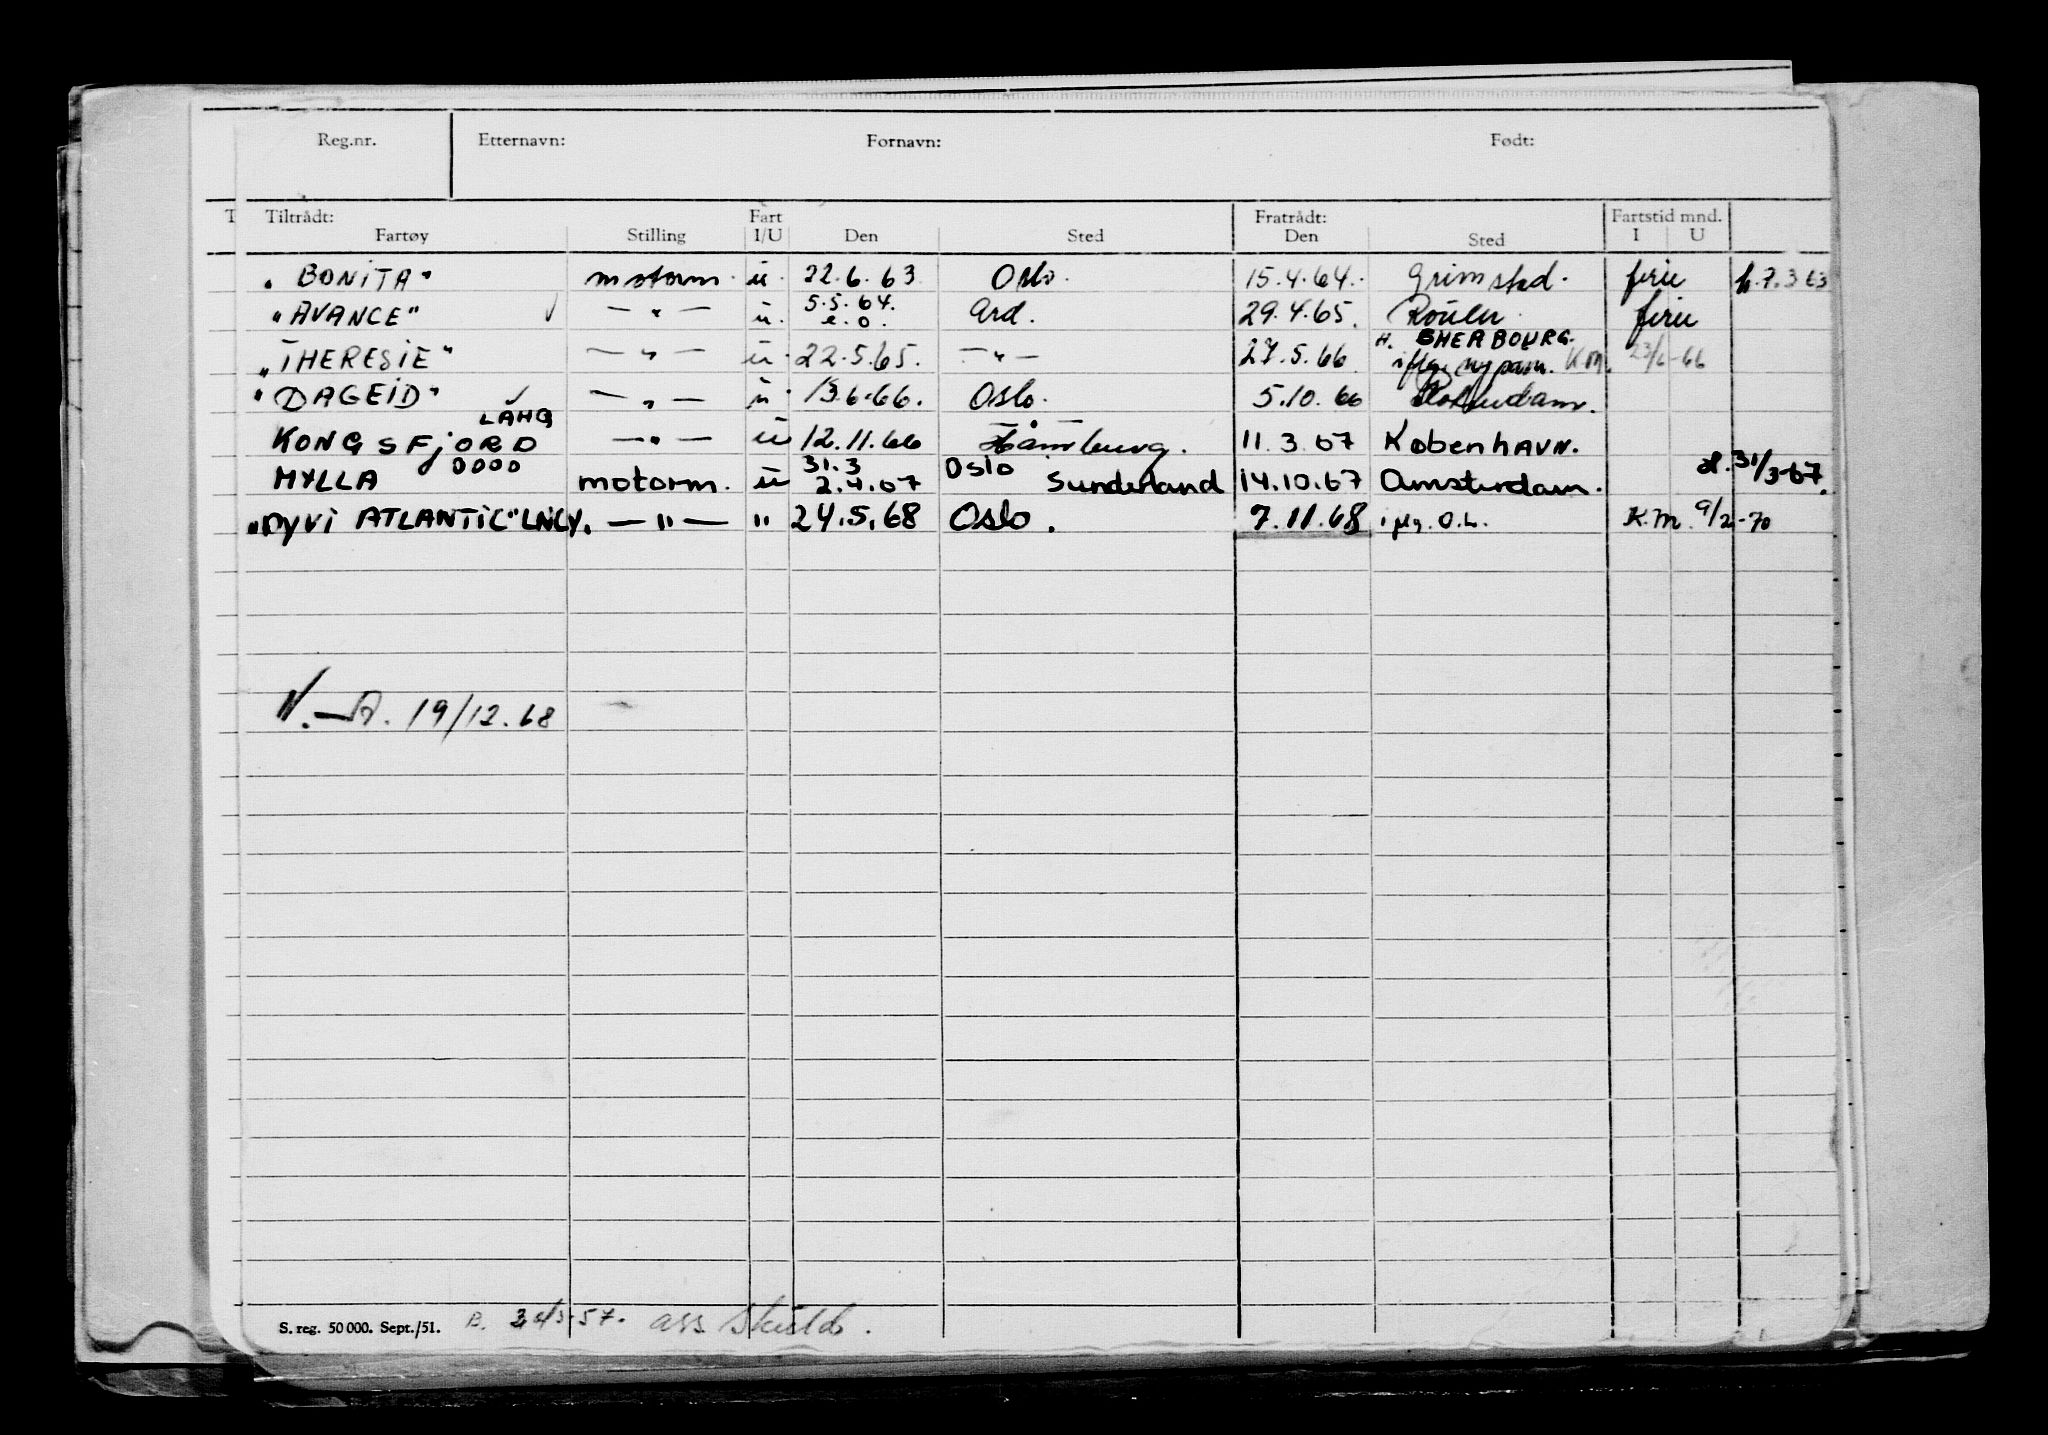 Reg.nr. Etternavn: Fornavn: Født:
T Tiltrådt: Fart Fratrådt: Fartstid mnd.
Fartøy Stilling I/U Den Sted Den Sted I U
"BONITA" motorm. u. 22.6.63 Oslo. 15.4.64. Grimstad. ferie 7.3 63
"AVANCE" — " — u. 5.5.64. e.o. Ard. 29.4.65. Rouen ferie
"THERESIE" — " — u. 22.5.65. — " — 27.5.66 H. CHERBOURG.
iflg. ny pam. K M. 23/6-66
"DAGEID" — " — u. 13.6.66. Oslo. 5.10.66 Rotterdam.
LAHG
KONGSFJORD — " — u 12.11.66 Hamburg. 11.3.67 KøbenhAVN.
0000 31.3 Oslo 31/3-67.
MYLLA motorm. u 2.4.67 Sunderland 14.10.67 Amsterdam.
"DYVI ATLANTIC" LNCY. — " — " 24.5.68 Oslo. 7.11.68 iflg. O.L. K.M. 9/2-70
N.-A. 19/12.68
S. reg. 50 000. Sept./51. B. 57. ass Skuld.